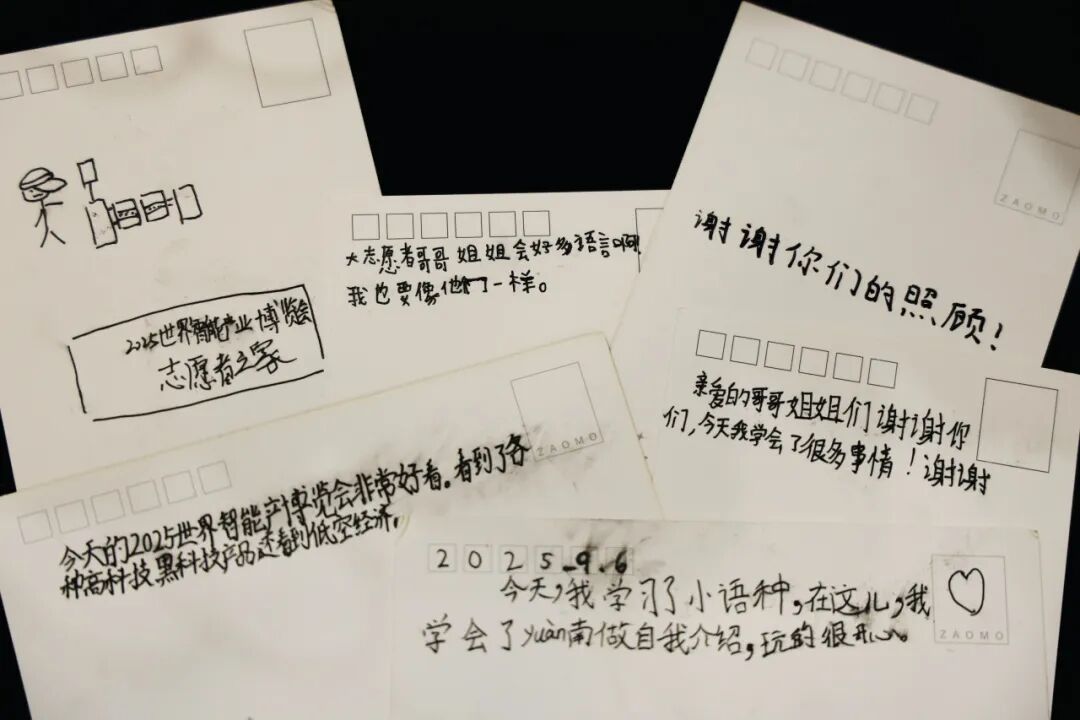 2025世界智能产业博览会
志愿者之家
大志愿者哥哥姐姐会好多语言啊
我也要像他们一样。
ZAOMO
谢谢你们的照顾!
亲爱的哥哥姐姐们谢谢你
们,今天我学会了很多事情!谢谢
ZAOMO
今天的2025世界智能产博览会非常好看。看到了各
种高科技黑科技产品还看到低空经济,
2025.9.6
今天,我学习了小语种,在这儿,我
学会了yuàn南做自我介绍,玩的很开心。
ZAOMO